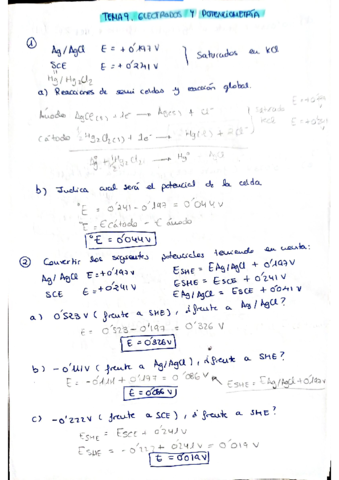 TEMA 9. ELECTRODOS Y POTENCIOMETRÍA
①
Ag/AgCl E = +0'197V } Saturados en KCl
SCE E = +0'241V
Hg/Hg2Cl2
a) Reacciones de semi celdas y reacción global.
Ánodo AgCl(s) + 1e- → Ag(s) + Cl-
Cátodo Hg2Cl2(s) + → Hg(l) + 2Cl-
b) Indica cual será el potencial de la celda
°E = 0'241 - 0'197 = 0'044V
E = Ecátodo - E ánodo
°E = 0'044V
② Convertir los siguientes potenciales teniendo en cuenta:
Ag/AgCl E = +0'197V ESHE = EAg/AgCl + 0'197V
SCE E = +0'241V ESHE = ESCE + 0'241V
EAg/AgCl = ESCE + 0'041V
a) 0'523V (frente a SHE), ¿frente a Ag/AgCl?
E = 0'523 - 0'197 = 0'326V
E = 0'326V
b) -0'111V (frente a Ag/AgCl), ¿frente a SHE?
E = -0'111 + 0'197 = 0'086V
ESHE = EAg/AgCl + 0'197
E = 0'086V
c) -0'222V (frente a SCE), ¿frente a SHE?
ESHE = ESCE + 0'241V
ESHE = -0'222 + 0'241V = 0'019V
E = 0'019V